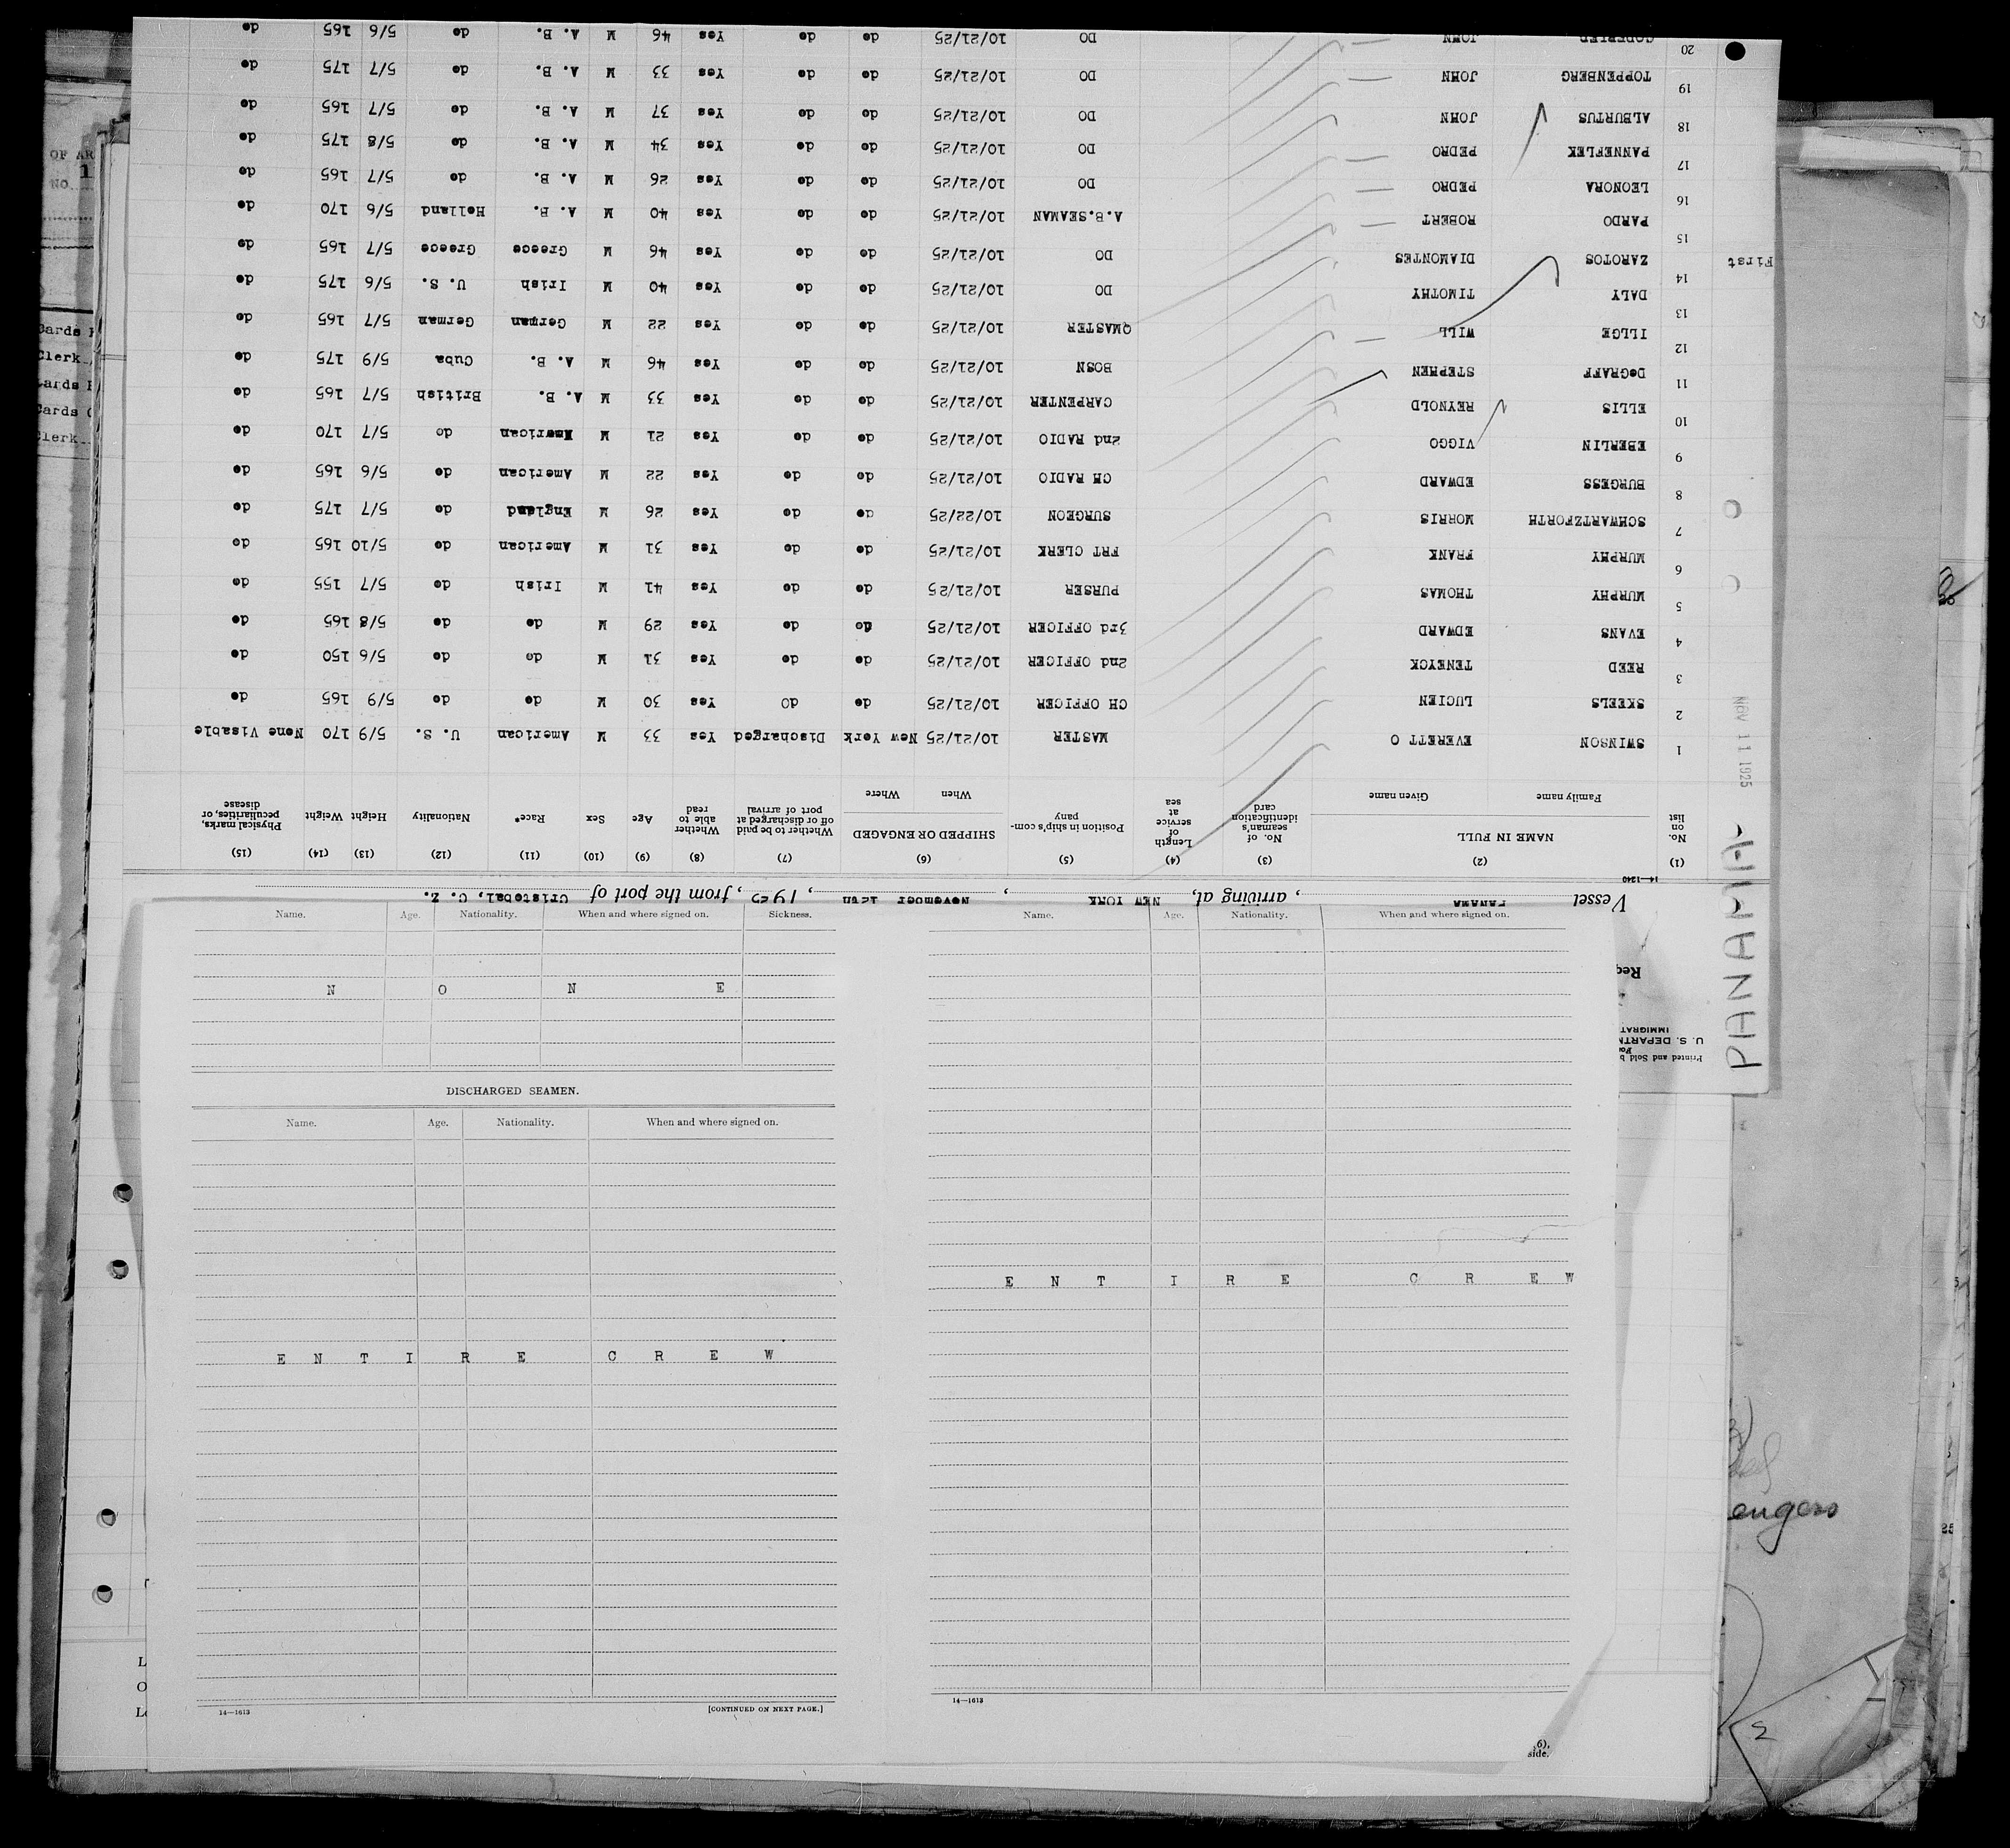 Vessel PANAMA, arriving at, NEW YORK, November 12th, 1925, from the port of Cristobal, C. Z.
14—1240
(1) (2) (3) (4) (5) (6) (7) (8) (9) (10) (11) (12) (13) (14) (15)
No. on list NAME IN FULL Family name Given name No. of seaman's identification card Length of service at sea Position in ship's company SHIPPED OR ENGAGED When Where Whether to be paid off or discharged at port of arrival Whether able to read Age Sex Race* Nationality Height Weight Physical marks, peculiarities, or disease
1 SWINSON EVERETT O MASTER 10/21/25 New York Discharged Yes 33 M American U. S. 5/9 170 None Visable
2 SKEELS LUCIEN CH OFFICER 10/21/25 do do Yes 30 M do do 5/9 165 do
3 REED TENEYCK 2nd OFFICER 10/21/25 do do Yes 31 M do do 5/6 150 do
4 EVANS EDWARD 3rd OFFICER 10/21/25 do do Yes 29 M do do 5/8 165 do
5 MURPHY THOMAS PURSER 10/21/25 do do Yes 41 M Irish do 5/7 155 do
6 MURPHY FRANK FRT CLERK 10/21/25 do do Yes 31 M American do 5/10 165 do
7 SCHWARTZFORTH MORRIS SURGEON 10/22/25 do do Yes 26 M England do 5/7 175 do
8 BURGESS EDWARD CH RADIO 10/21/25 do do Yes 22 M American do 5/6 165 do
9 EBERLIN VIGGO 2nd RADIO 10/21/25 do do Yes 21 M American do 5/7 170 do
10 ELLIS REYNOLD CARPENTER 10/21/25 do do Yes 33 M A. B. British 5/7 165 do
11 DeGRAFF STEPHEN BOSN 10/21/25 do do Yes 46 M A. B. Cuba 5/9 175 do
12 ILLGE WILL QMASTER 10/21/25 do do Yes 22 M German German 5/7 165 do
13 DALY TIMOTHY DO 10/21/25 do do Yes 40 M Irish U. S. 5/6 175 do
14 ZAROTOS DIAMONTES DO 10/21/25 do do Yes 46 M Greece Greece 5/7 165 do
15 PARDO ROBERT A.B.SEAMAN 10/21/25 do do Yes 40 M A. B. Holland 5/6 170 do
16 LEONORA PEDRO DO 10/21/25 do do Yes 26 M A. B. do 5/7 165 do
17 PANNEFLEK PEDRO DO 10/21/25 do do Yes 34 M A. B. do 5/8 175 do
18 ALBURTUS JOHN DO 10/21/25 do do Yes 37 M A. B. do 5/7 165 do
19 TOPPENBERG JOHN DO 10/21/25 do do Yes 33 M A. B. do 5/7 175 do
20 JOHN DO 10/21/25 do do Yes 46 M A. B. do 5/6 165 do
First
NOV 11 1925
PANAMA
Req
IMMIGRAT
U. S. DEPARTM
Printed and Sold b
OF AR
NO. 1
Cards
Clerk
Cards
Cards
Clerk
Name. Age. Nationality. When and where signed on. Sickness.
N O N E
DISCHARGED SEAMEN.
Name. Age. Nationality. When and where signed on.
E N T I R E C R E W
14—1613 [CONTINUED ON NEXT PAGE.]
Name. Age. Nationality. When and where signed on.
E N T I R E C R E W
14—1613
(6).
side.
engers
25